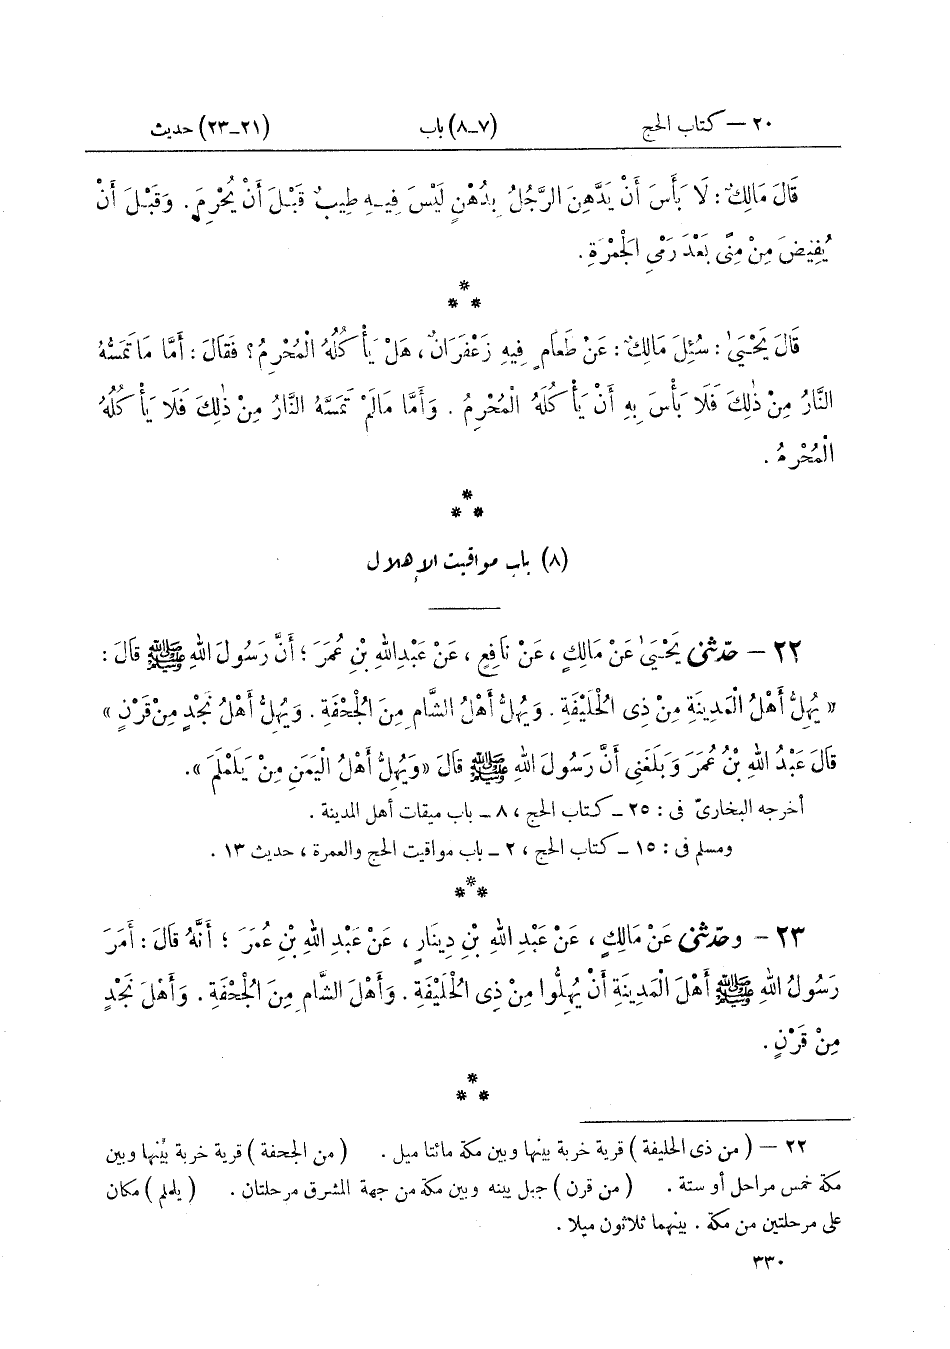 ٢٠ – كتاب الحج (٧_٨) باب (٢١_٢٣) حديث
قَالَ مَالِكٌ : لَا بَأْسَ أَنْ يَدَّهِنَ الرَّجُلُ بِدُهْنٍ لَيْسَ فِيهِ طِيبٌ قَبْلَ أَنْ يُحْرِمَ . وَقَبْلَ أَنْ
يُفِيضَ مِنْ مِنًى بَعْدَ رَمْىِ الْجَمْرَةِ .
*
* *
قَالَ يَحْيَىٰ : سُئِلَ مَالِكٌ : عَنْ طَعَامٍ فِيهِ زَعْفَرَانٌ ، هَلْ يَأْكُلُهُ الْمُحْرِمُ ؟ فَقَالَ : أَمَّا مَا تَمَسُّهُ
النَّارُ مِنْ ذٰلِكَ فَلَا بَأْسَ بِهِ أَنْ يَأْكُلَهُ الْمُحْرِمُ . وَأَمَّا مَالَمْ تَمَسَّهُ النَّارُ مِنْ ذٰلِكَ فَلَا يَأْكُلُهُ
الْمُحْرِمُ .
*
* *
(٨) باب مواقيت الإهلال
٢٢ – حدّثنى يَحْيَىٰ عَنْ مَالِكٍ ، عَنْ نَافِعٍ ، عَنْ عَبْدِ اللهِ بْنِ عُمَرَ ؛ أَنَّ رَسُولَ اللهِ ﷺ قَالَ :
« يُهِلُّ أَهْلُ الْمَدِينَةِ مِنْ ذِى الْحُلَيْفَةِ . وَيُهِلُّ أَهْلُ الشَّامِ مِنَ الْجُحْفَةِ . وَيُهِلُّ أَهْلُ نَجْدٍ مِنْ قَرْنٍ »
قَالَ عَبْدُ اللهِ بْنُ عُمَرَ وَبَلَغَنِى أَنَّ رَسُولَ اللهِ ﷺ قَالَ «وَيُهِلُّ أَهْلُ الْيَمَنِ مِنْ يَلَمْلَمَ».
أخرجه البخارىّ فى : ٢٥ _ كتاب الحج ، ٨ _ باب ميقات أهل المدينة .
ومسلم فى : ١٥ _ كتاب الحج ، ٢ _ باب مواقيت الحج والعمرة ، حديث ١٣ .
*
* *
٢٣ – وحدّثنى عَنْ مَالِكٍ ، عَنْ عَبْدِ اللهِ بْنِ دِينَارٍ ، عَنْ عَبْدِ اللهِ بْنِ عُمَرَ ؛ أَنَّهُ قَالَ : أَمَرَ
رَسُولُ اللهِ ﷺ أَهْلَ الْمَدِينَةِ أَنْ يُهِلُّوا مِنْ ذِى الْحُلَيْفَةِ . وَأَهْلَ الشَّامِ مِنَ الْجُحْفَةِ . وَأَهْلَ نَجْدٍ
مِنْ قَرْنٍ .
*
* *
٢٢ – ( من ذى الحليفة ) قرية خربة بينها وبين مكة مائتا ميل . ( من الجحفة ) قرية خربة بينها وبين
مكة خمس مراحل أو ستة . ( من قرن ) جبل بينه وبين مكة من جهة المشرق مرحلتان . ( يلملم ) مكان
على مرحلتين من مكة . بينهما ثلاثون ميلا .
٣٣٠